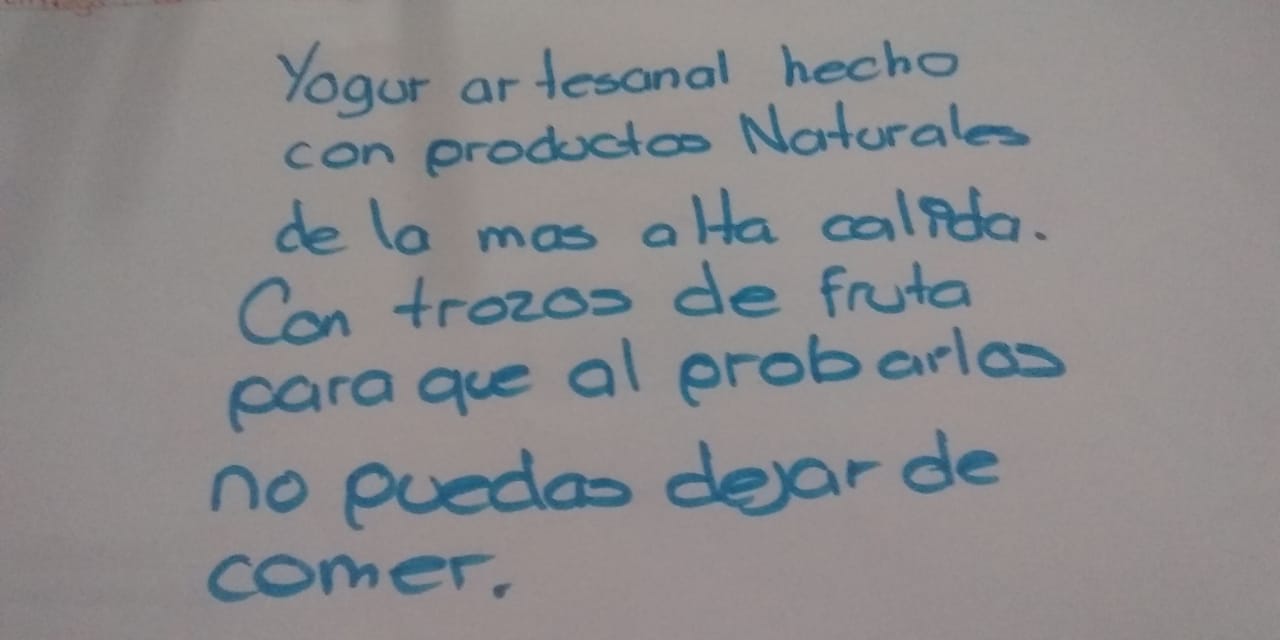 Yogur artesanal hecho
con productos Naturales
de la mas alta calida.
Con trozos de fruta
para que al probarlos
no puedas dejar de
comer.